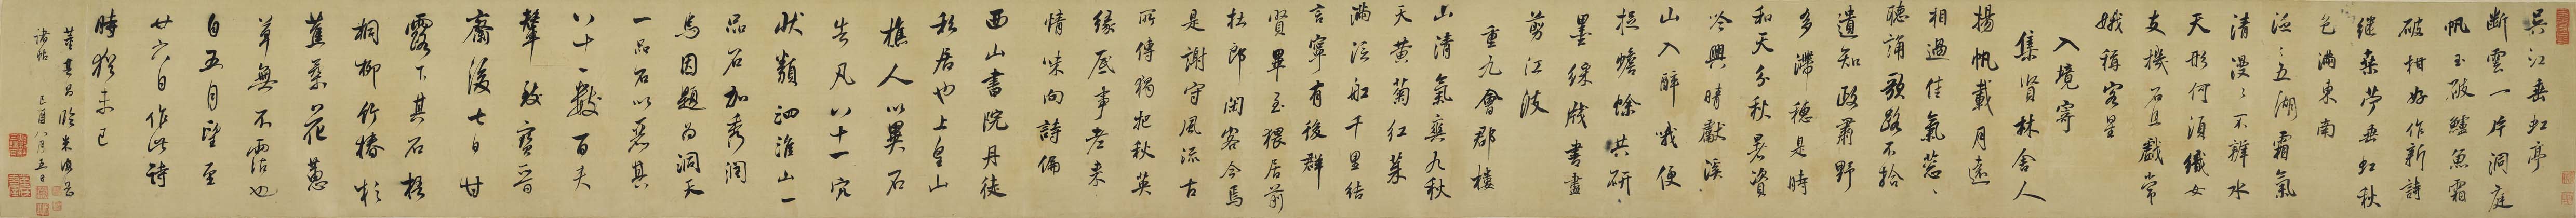 吳江垂虹亭
斷雲一片洞庭
帆玉破鱸魚霜
破柑好作新詩
繼桑苧垂虹秋
色滿東南
泛泛五湖霜氣
清漫漫不辨水
天形何須織女
支機石且戲常
娥稱客星
入境寄
集賢林舍人
揚帆載月遠
相過佳氣葱葱
聽誦歌路不拾
遺知政肅野
多滯穗是時
和天分秋暑資
冷興晴獻溪
山入醉哦便
捉蟾蜍共研
墨綵牋書盡
剪江波
重九會郡樓
山清氣爽九秋
天黄菊紅茱
滿泛船千里結
言寧有後群
賢畢至猥居前
杜郎閑客今焉
是謝守風流古
所傳獨把秋英
緣底事老来
情味向詩偏
西山書院丹徒
私居也上皇山
樵人以異石
告凡八十一穴
狀類泗淮山一
品石加秀潤
焉因題為洞天
一品石以丞其
八十一數百夫
輦致寶晉
齋後七日甘
露下其石梧
桐柳竹椿杉
蕉菜花蔥
草無不霑也
自五月望至
廿六日作此詩
時猶未已
董其昌臨米海岳
諸帖 己酉八月五日